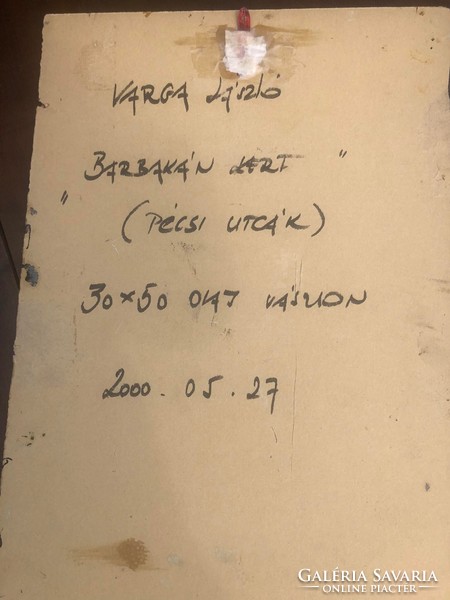 VARGA László
"BARBAKÁN KERT"
(PÉCSI UTCÁK)
30x50 OLAJ VÁSZNON
2000.05.27
GALÉRIA SAVARIA
ONLINE PIACTÉR